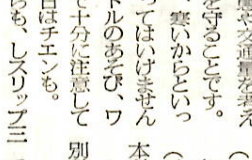 を守ることです。
、寒いからといっ
ってはいけません
トルのあそび、ワ
て十分に注意して
日はチエンも。
らも、しスリップ三
本
別